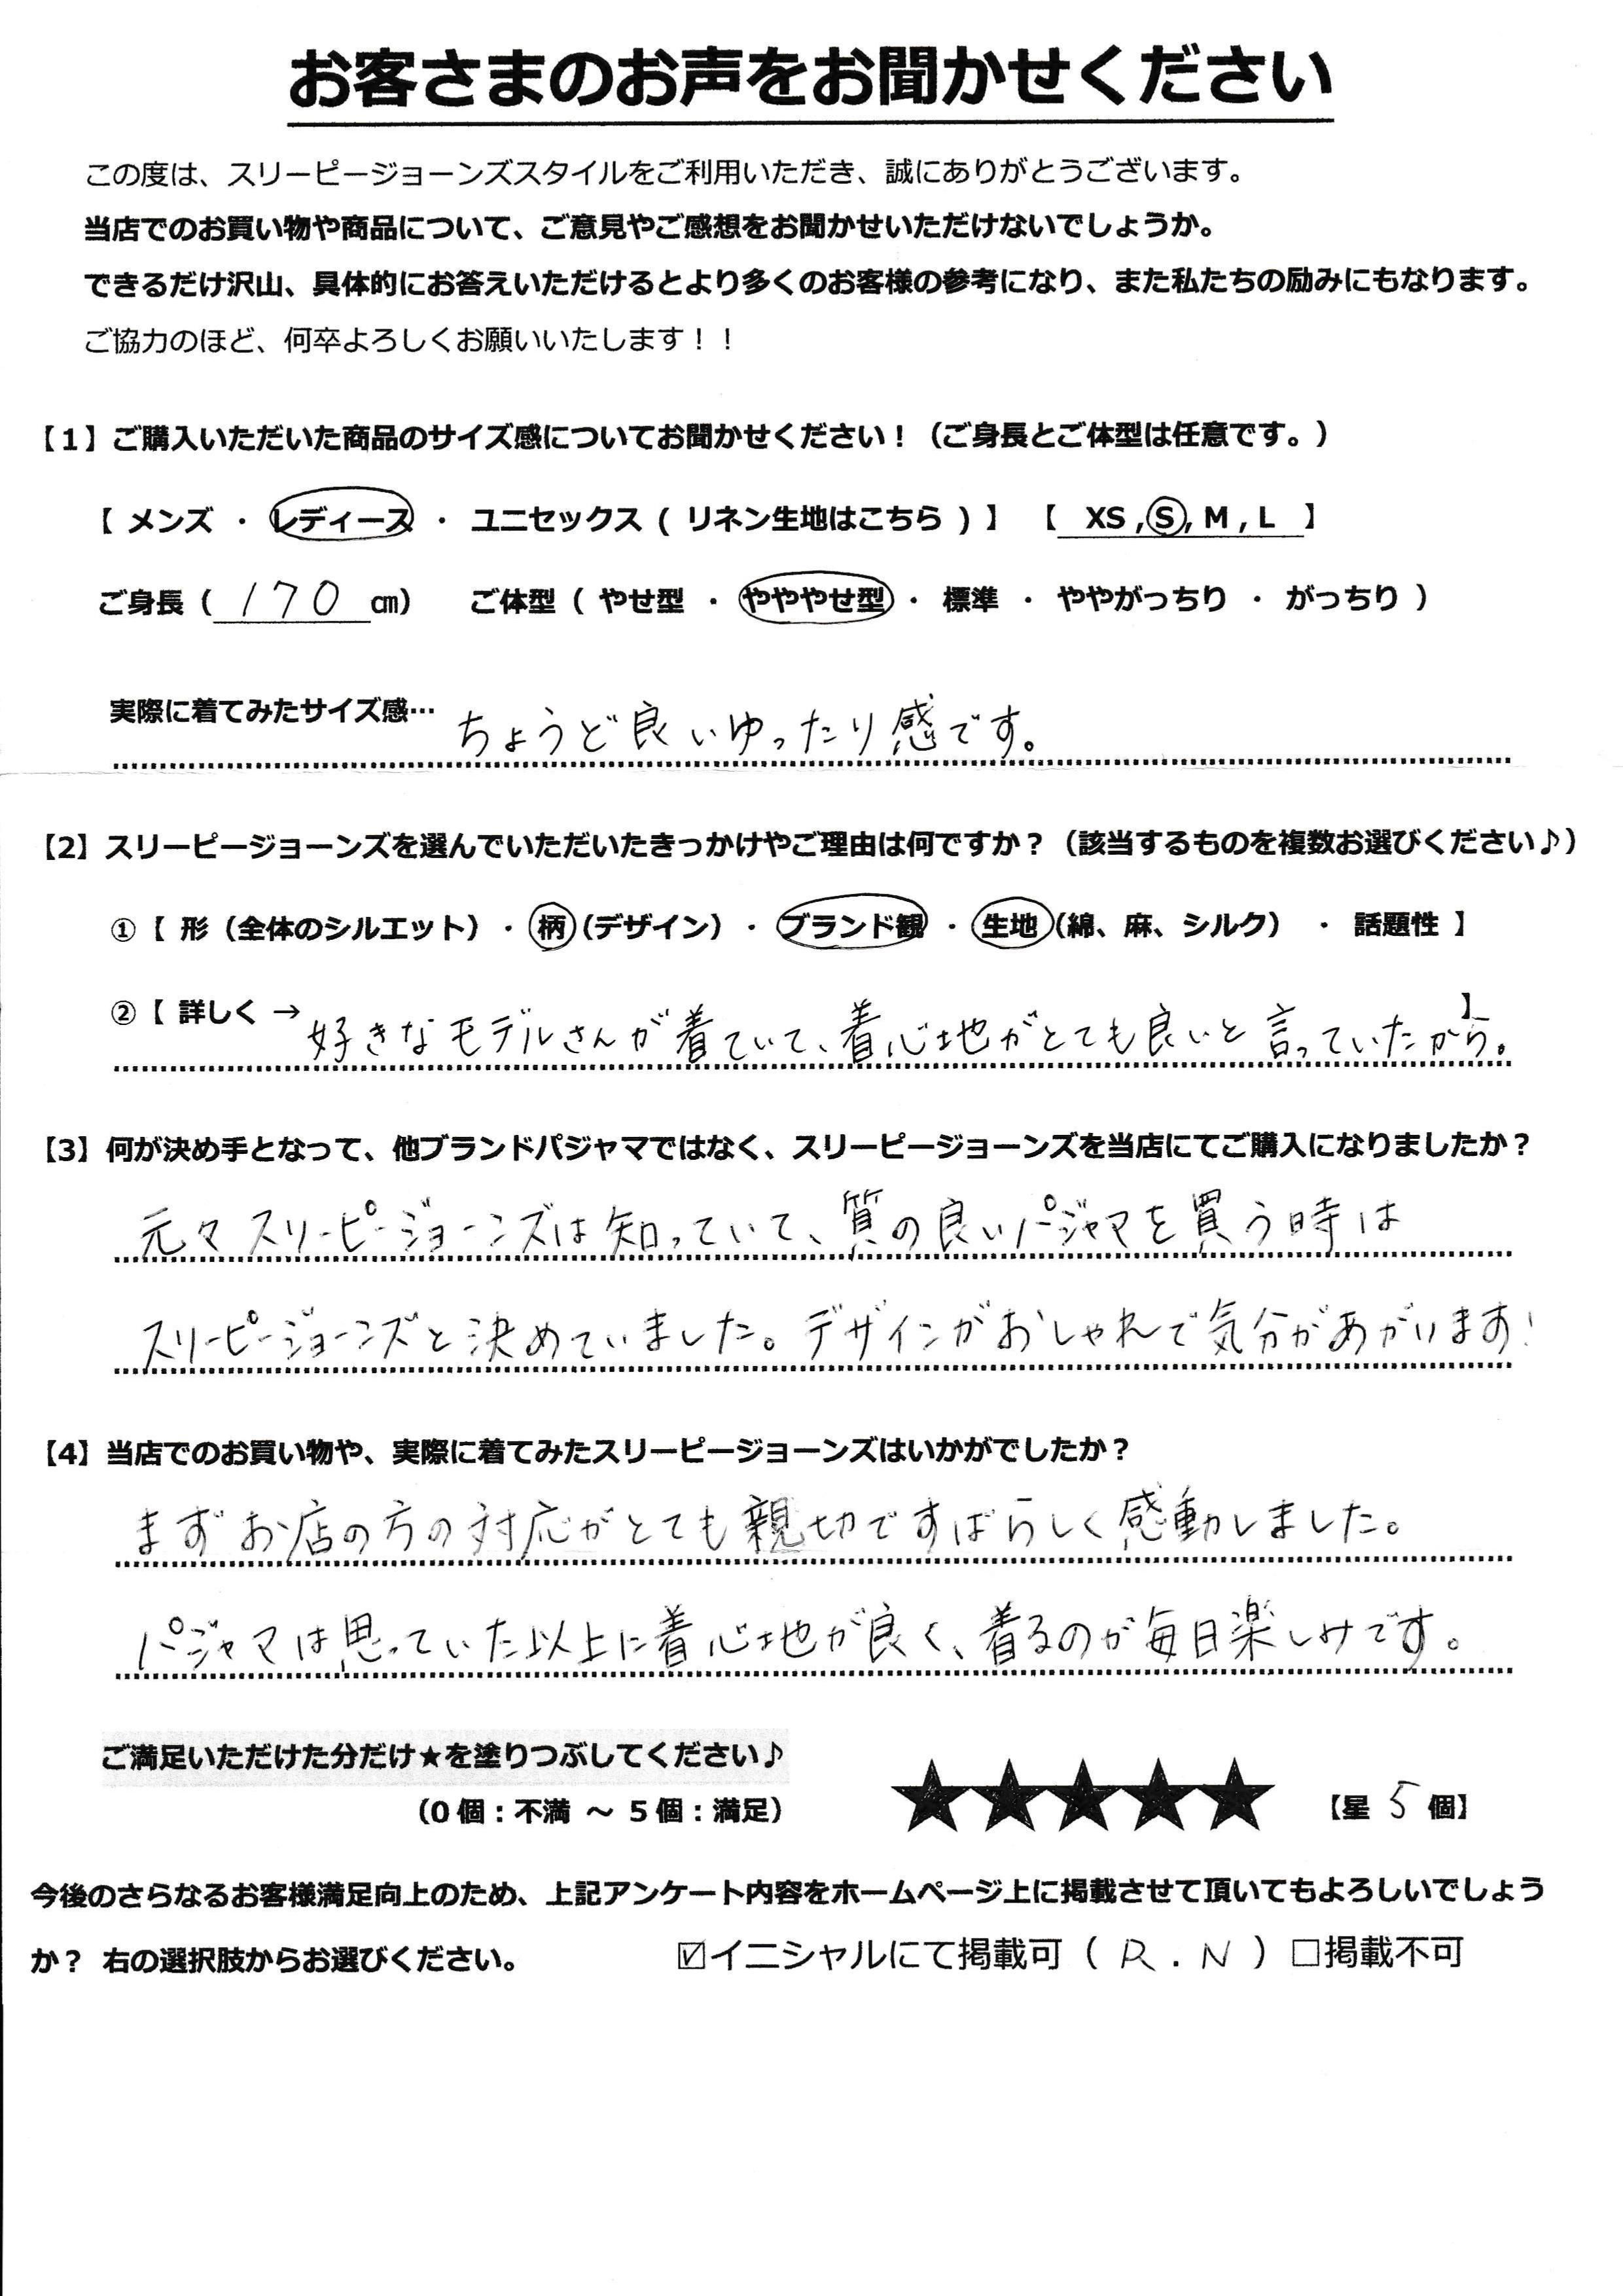 お客さまのお声をお聞かせください
この度は、スリーピージョーンズスタイルをご利用いただき、誠にありがとうございます。
当店でのお買い物や商品について、ご意見やご感想をお聞かせいただけないでしょうか。
できるだけ沢山、具体的にお答えいただけるとより多くのお客様の参考になり、また私たちの励みにもなります。
ご協力のほど、何卒よろしくお願いいたします！！
【1】ご購入いただいた商品のサイズ感についてお聞かせください！（ご身長とご体型は任意です。）
【 メンズ ・ レディース ・ ユニセックス ( リネン生地はこちら ) 】 【 XS , S , M , L 】
ご身長（ 170 ㎝） ご体型（ やせ型 ・ やややせ型 ・ 標準 ・ ややがっちり ・ がっちり ）
実際に着てみたサイズ感… ちょうど良いゆったり感です。
【2】スリーピージョーンズを選んでいただいたきっかけやご理由は何ですか？（該当するものを複数お選びください♪）
①【 形（全体のシルエット）・ 柄（デザイン） ・ ブランド観 ・ 生地（綿、麻、シルク） ・ 話題性 】
②【 詳しく → 好きなモデルさんが着ていて、着心地がとても良いと言っていたから。】
【3】何が決め手となって、他ブランドパジャマではなく、スリーピージョーンズを当店にてご購入になりましたか？
元々スリーピージョーンズは知っていて、質の良いパジャマを買う時は
スリーピージョーンズと決めていました。デザインがおしゃれで気分があがいます!
【4】当店でのお買い物や、実際に着てみたスリーピージョーンズはいかがでしたか？
まずお店の方の対応がとても親切ですばらしく感動しました。
パジャマは思っていた以上に着心地が良く、着るのが毎日楽しみです。
ご満足いただけた分だけ★を塗りつぶしてください♪
（0 個：不満 ～ 5 個：満足） ★★★★★ 【星 5 個】
今後のさらなるお客様満足向上のため、上記アンケート内容をホームページ上に掲載させて頂いてもよろしいでしょう
か？ 右の選択肢からお選びください。 ☑イニシャルにて掲載可（ R.N ）□掲載不可